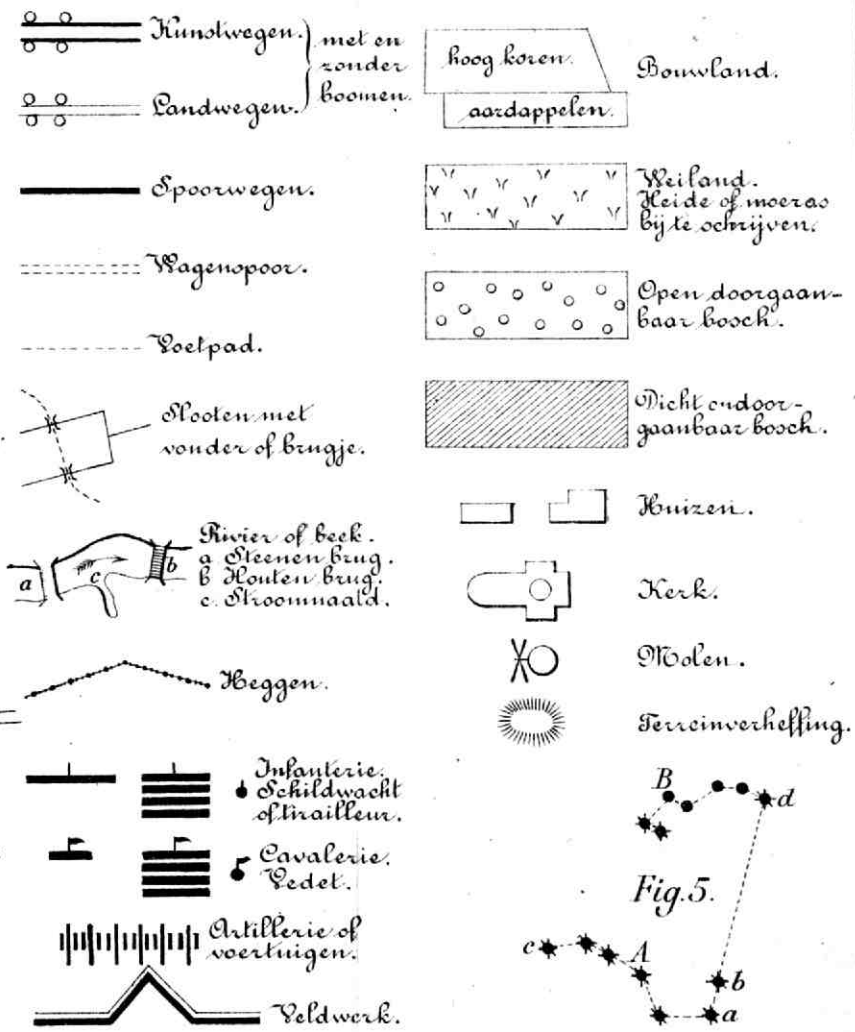 Kunstwegen.
Landwegen.
met en
zonder
boomen.
Spoorwegen.
Wagenspoor.
Voetpad.
Slooten met
vonder of brugje.
a
c
b
Rivier of beek.
a Steenen brug.
b Houten brug.
c. Stroomnaald.
Heggen.
Infanterie.
Schildwacht
of tirailleur.
Cavalerie.
Vedet.
Artillerie of
voertuigen.
Veldwerk.
hoog koren.
aardappelen.
Bouwland.
Weiland.
Heide of moeras
bij te schrijven.
Open doorgaan-
baar bosch.
Dicht ondoor-
gaanbaar bosch.
Huizen.
Kerk.
Molen.
Terreinverheffing.
B
d
Fig. 5.
c
A
b
a